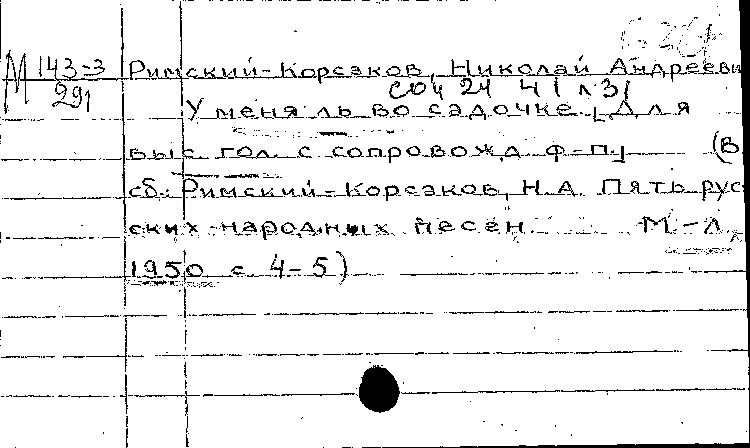 М 143-3 Римский-Корсаков, Николай Андреевич
291 соч 24
У меня ль во садочке [Для
выс. гол. с сопровожд. ф-п.] (В
сб.: Римский-Корсаков, Н.А. Пять рус-
ских народных песен. М.-Л.,
1950 с. 4-5)